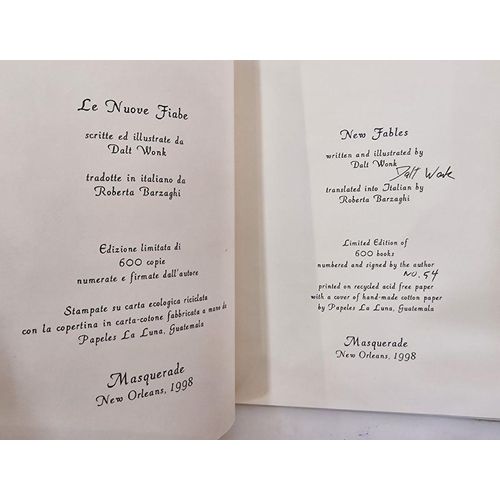 Le Nuove Fiabe
scritte ed illustrate da
Dalt Wonk
tradotte in italiano da
Roberta Barzaghi
Edizione limitata di
600 copie
numerate e firmate dall'autore
Stampate su carta ecologica riciclata
con la copertina in carta-cotone fabbricata a mano da
Papeles La Luna, Guatemala
Masquerade
New Orleans, 1998
New Fables
written and illustrated by
Dalt Wonk
Dalt Wonk
translated into Italian by
Roberta Barzaghi
Limited Edition of
600 books
numbered and signed by the author
NO. 54
printed on recycled acid free paper
with a cover of hand-made cotton paper
by Papeles La Luna, Guatemala
Masquerade
New Orleans, 1998